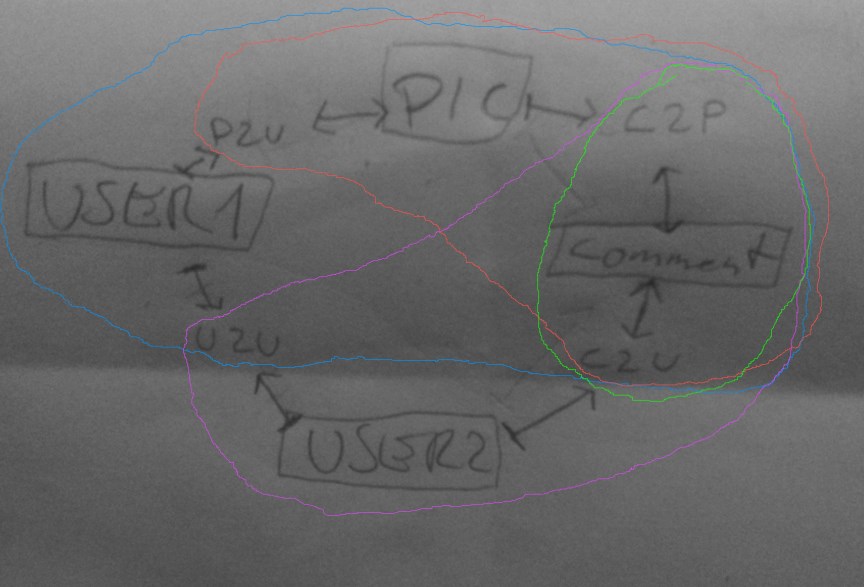 PIC
P2U
C2P
USER1
Comment
U2U
C2U
USER2